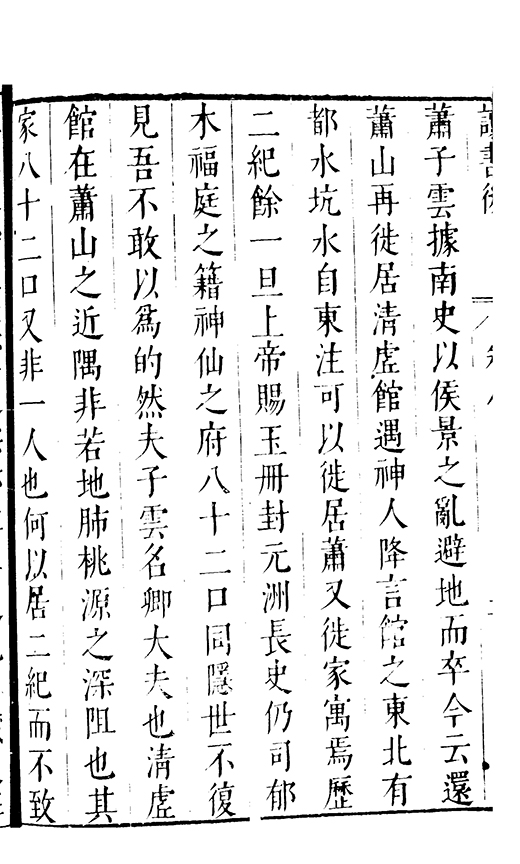 讀書後
蕭子雲據南史以侯景之亂避地而卒今云還
蕭山再徙居清虛館遇神人降言館之東北有
都水坑水自東注可以徙居蕭又徙家寓焉歷
二紀餘一旦上帝賜玉冊封元洲長史仍司郁
木福庭之籍神仙之府八十二口同隱世不復
見吾不敢以為的然夫子雲名卿大夫也清虛
館在蕭山之近隅非若地肺桃源之深阻也其
家八十二口又非一人也何以居二紀而不致